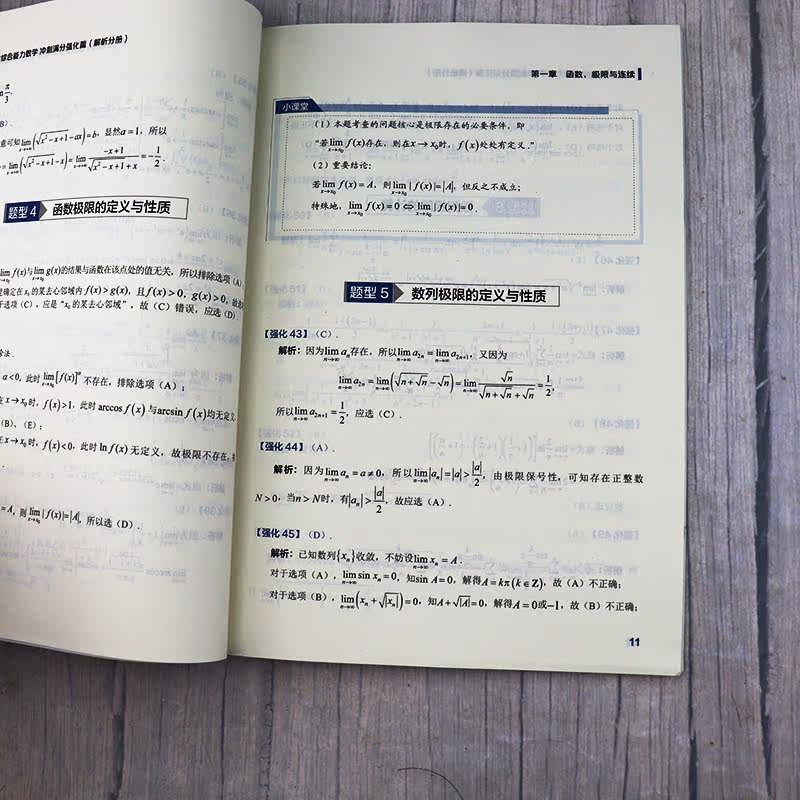 综合能力数学 冲刺满分强化篇（解析分册）
π/3.
B）.
意可知lim(√(x²-x+1)-ax)=b，显然a=1，所以
=lim(√(x²-x+1)-x)=lim (-x+1)/(√(x²-x+1)+x)=-1/2.
题型 4 函数极限的定义与性质
lim f(x)与lim g(x)的结果与函数在该点处的值无关，所以排除选项（A）
确定在x₀的某去心邻域内f(x)>g(x)，且f(x)>0，g(x)>0，故
于选项（C），应是“x₀的某去心邻域”，故（C）错误，应选（D）
除法.
a<0，此时lim[f(x)]ᵃ不存在，排除选项（A）；
x→x₀时，f(x)>1，此时arccos f(x)与arcsin f(x)均无定义，
（B）、（E）；
x→x₀时，f(x)<0，此时ln f(x)无定义，故极限不存在，
=A，则lim|f(x)|=|A|，所以选（D）.
第一章 函数、极限与连续
小课堂
（1）本题考查的问题核心是极限存在的必要条件，即
“若lim f(x)存在，则在x→x₀时，f(x)处处有定义.”
（2）重要结论：
若lim f(x)=A，则lim|f(x)|=|A|，但反之不成立；
特殊地，lim f(x)=0⇔lim|f(x)|=0.
题型 5 数列极限的定义与性质
【强化43】（C）.
解析：因为lim aₙ存在，所以lim a₂ₙ=lim a₂ₙ₊₁，又因为
lim a₂ₙ=lim(√(n+√n)-√n)=lim √n/(√(n+√n)+√n)=1/2，
所以lim a₂ₙ₊₁=1/2，应选（C）.
【强化44】（A）.
解析：因为lim aₙ=a≠0，所以lim|aₙ|=|a|>|a|/2，由极限保号性，可知存在正整数
N>0，当n>N时，有|aₙ|>|a|/2，故应选（A）.
【强化45】（D）.
解析：已知数列{xₙ}收敛，不妨设lim xₙ=A.
对于选项（A），lim sin xₙ=0，知sin A=0，解得A=kπ(k∈Z)，故（A）不正确；
对于选项（B），lim(xₙ+√|xₙ|)=0，知A+√|A|=0，解得A=0或-1，故（B）不正确；
11